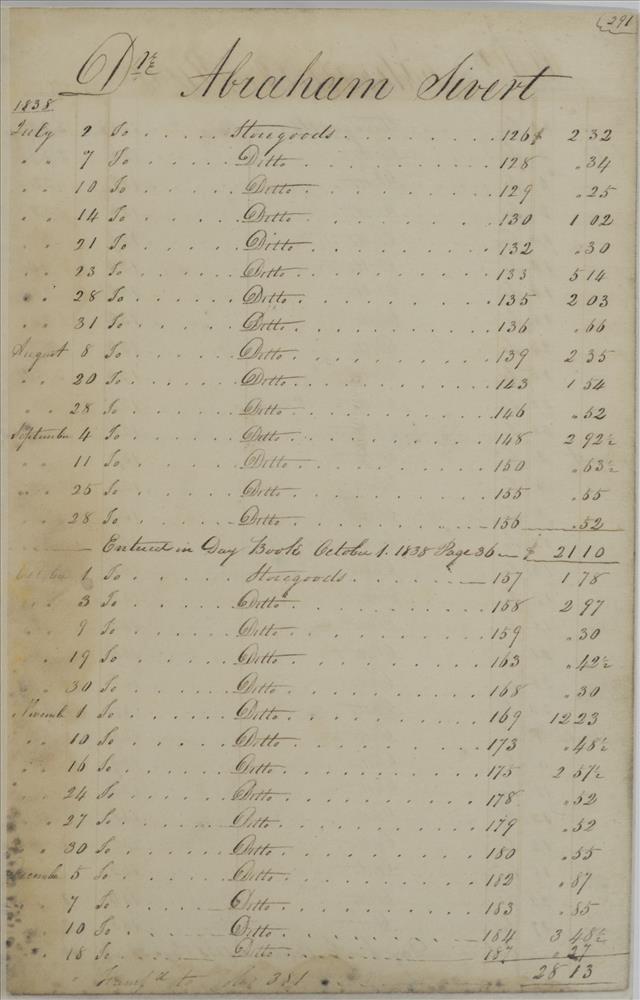 291
Dr. Abraham Sivert
1838
July 2 To Storegoods 126 $ 2 32
" " 7 To Ditto 128 .34
" " 10 To Ditto 129 .25
" " 14 To Ditto 130 1 02
" " 21 To Ditto 132 .30
" " 23 To Ditto 133 5 14
" " 28 To Ditto 135 2 03
" " 31 To Ditto 136 .66
August 8 To Ditto 139 2 35
" " 20 To Ditto 143 1 54
" " 28 To Ditto 146 .52
September 4 To Ditto 148 2 92½
" " 11 To Ditto 150 .63½
" " 25 To Ditto 155 .55
" " 28 To Ditto 156 .52
Entered in Day Book October 1. 1838 Page 36 $ 21 10
October 1 To Storegoods 157 1 78
" " 3 To Ditto 158 2 97
" " 9 To Ditto 159 .30
" " 19 To Ditto 163 .42½
" " 30 To Ditto 168 .30
Novemb 1 To Ditto 169 12 23
" " 10 To Ditto 173 .48½
" " 16 To Ditto 175 2 57½
" " 24 To Ditto 178 .52
" " 27 To Ditto 179 .52
" " 30 To Ditto 180 .55
December 5 To Ditto 182 .87
" " 7 To Ditto 183 .85
" " 10 To Ditto 184 3 48½
" " 18 To Ditto 187 .27
Transfd to 381 28 13